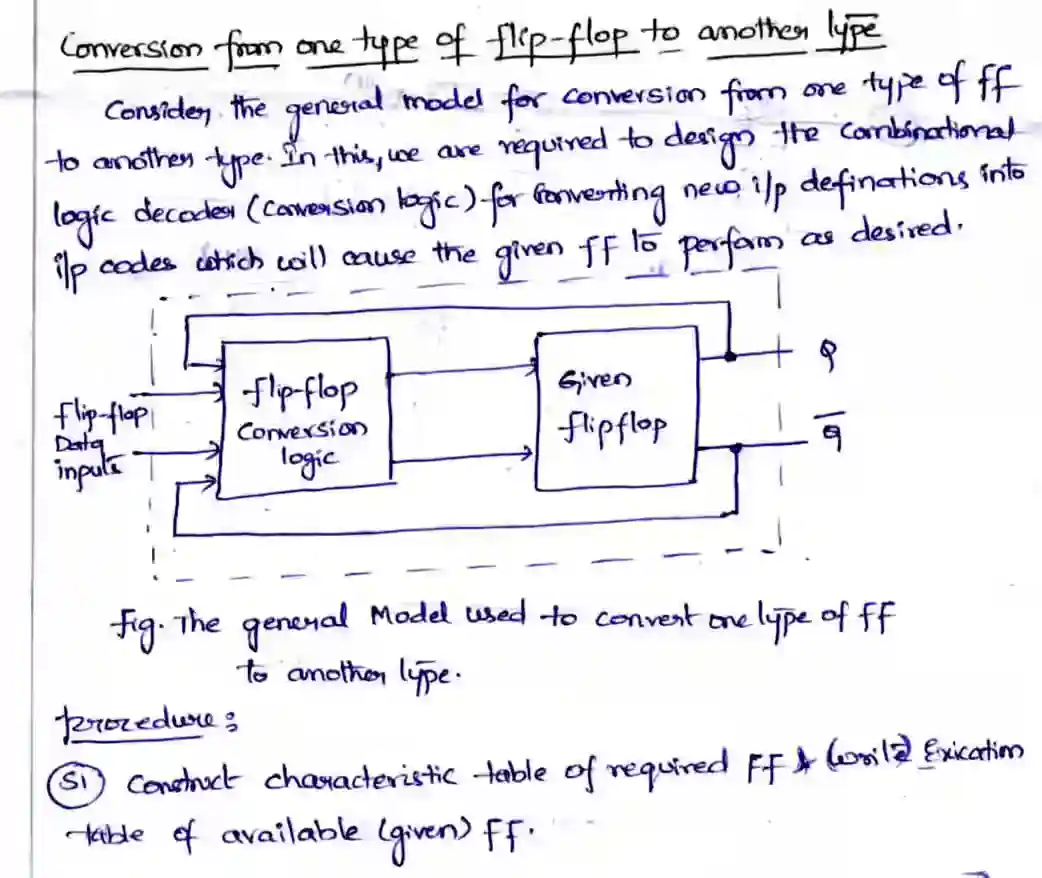 Conversion from one type of flip-flop to another type
Consider, the general model for conversion from one type of ff
to another type. In this, we are required to design the combinational
logic decoder (conversion logic) for converting new i/p definations into
i/p codes which will cause the given ff to perform as desired.
flip-flop
Data
inputs
flip-flop
Conversion
logic
Given
flipflop
Q
Q̅
fig. The general Model used to convert one type of ff
to another type.
procedure:
S1 Construct characteristic table of required FF & write Exication
table of available (given) FF.